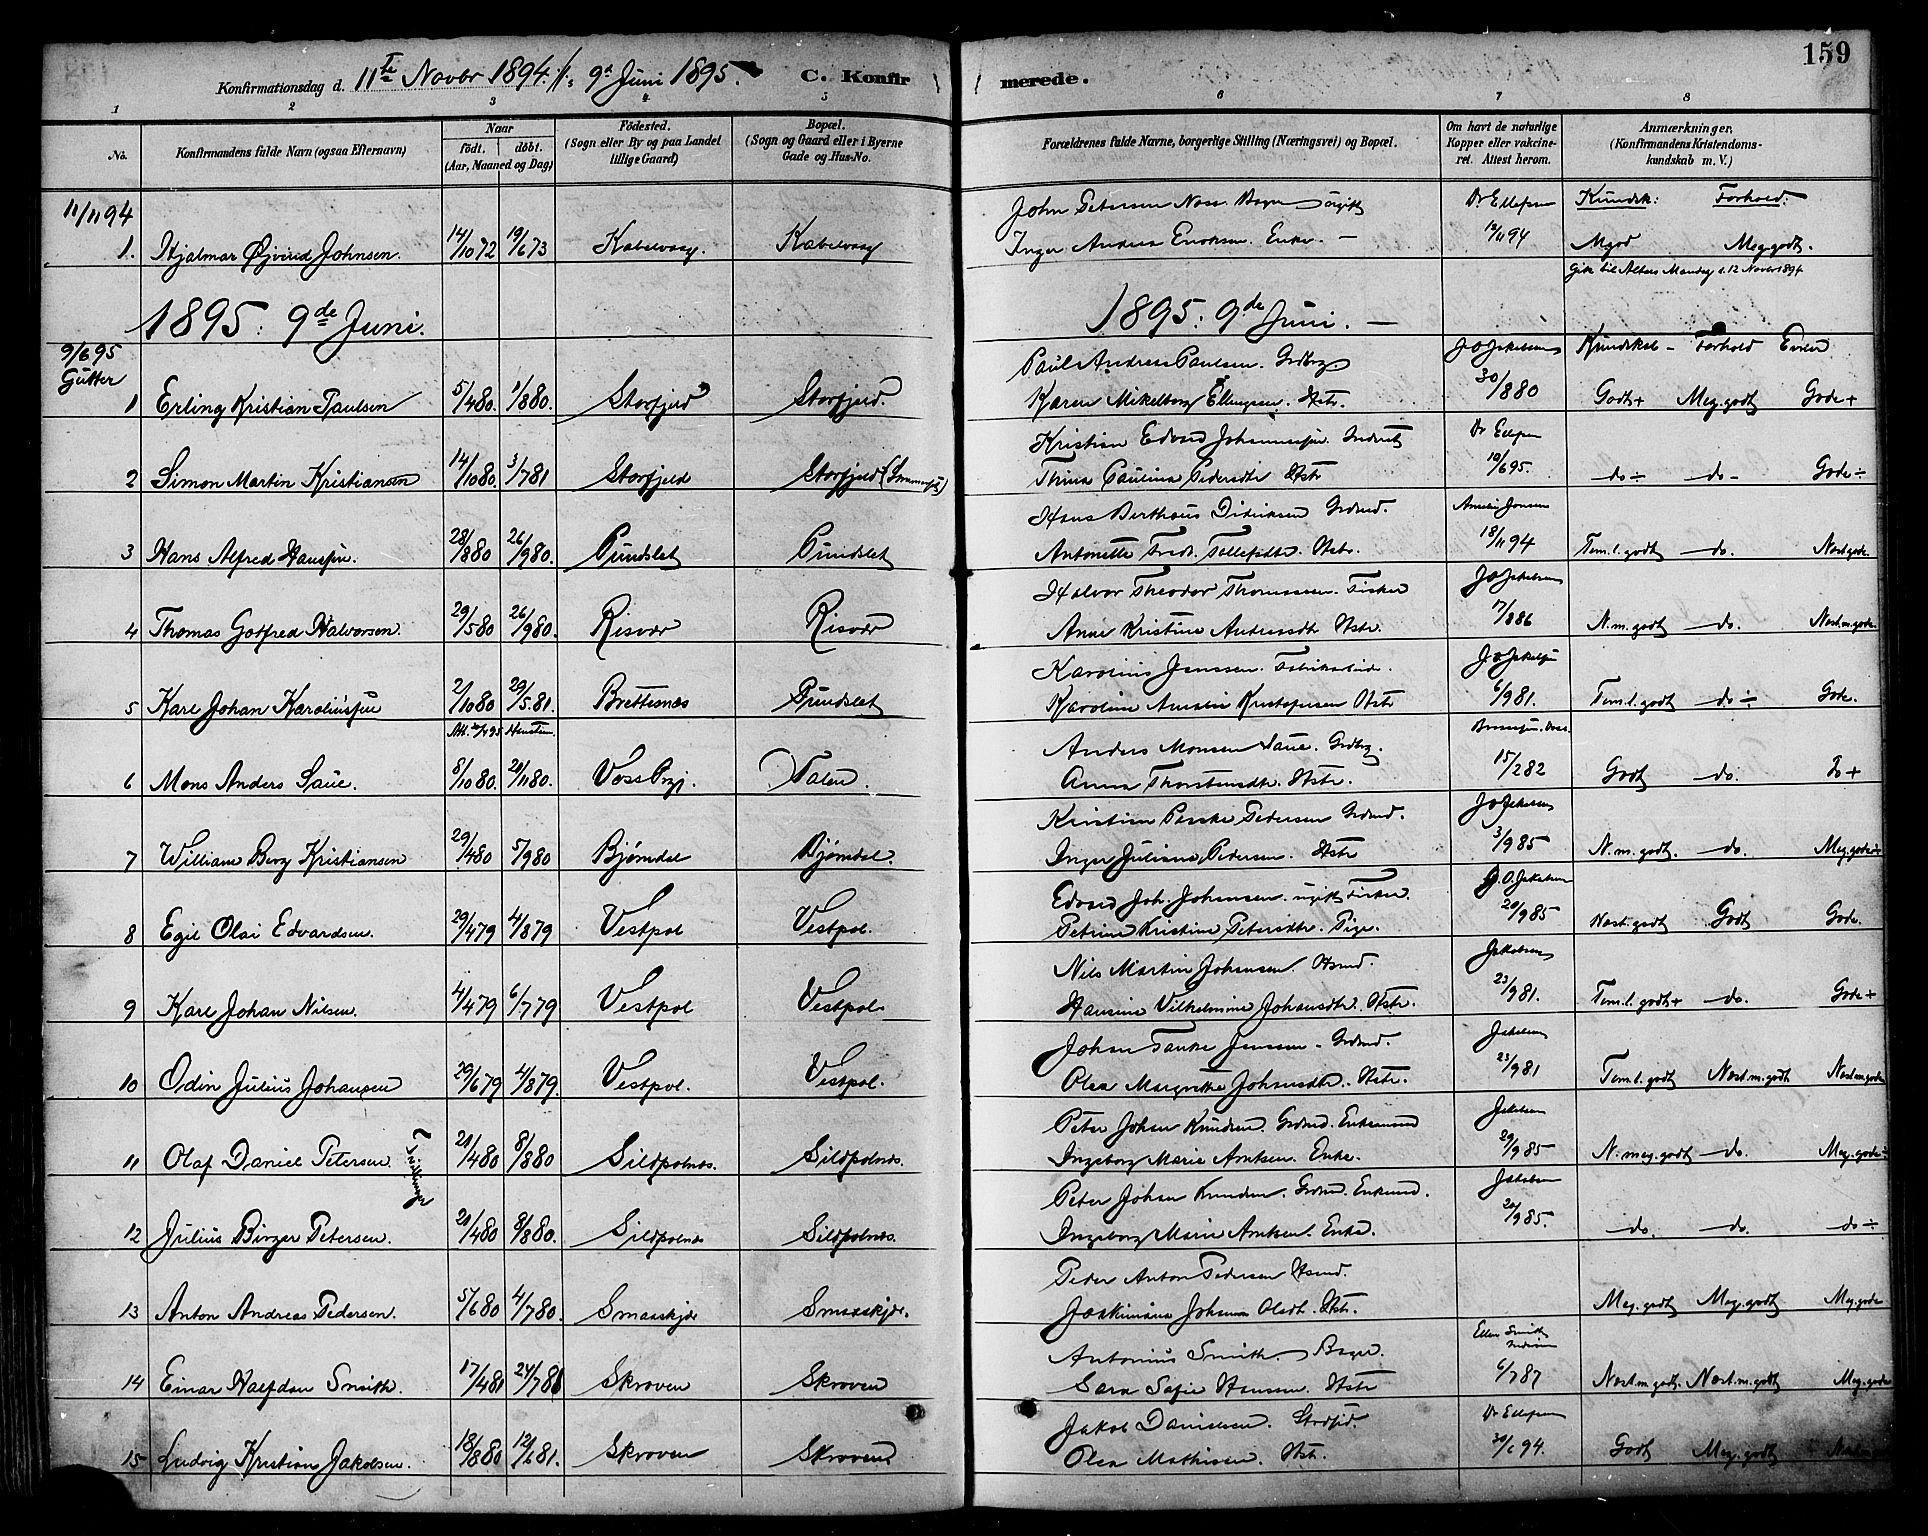 159
Konfirmationsdag d. 11te Novbr 1894. //: 9d Juni 1895. C. Konfirmerede.
1 2 3 4 5 6 7 8
No.
Konfirmandens fulde Navn (ogsaa Efternavn)
Naar
födt. döbt.
(Aar, Maaned og Dag)
Födested.
(Sogn eller By og paa Landet
tillige Gaard)
Bopæl.
(Sogn og Gaard eller i Byerne
Gade og Hus-No.
Forældrenes fulde Navne, borgerlige Stilling (Næringsvei) og Bopæl.
Om havt de naturlige
Kopper eller vakcine-
ret. Attest herom.
Anmærkninger,
(Konfirmandens Kristendoms-
kundskab m. V.)
11/11 94 John Petersen Dr Ellefsen Kundsk: Forhold.
1. Hjalmar Øjvind Johnsen. 14/10 72 19/6 73 Kabelvaag. Kabelvaag Inger Andrea Enke. — 12/11 94 Mgod Meg.godt.
Gik til Alters Mandag d. 12 Novbr 1894
1895: 9de Juni. 1895: 9de Juni. —
9/6 95 Paul Andreas Paulsen. Grdbrg. J O Jakobsen Kundskab - Forhold Evner
Gutter
1 Erling Kristian Paulsen 5/4 80. 1/8 80. Storfjeld Storfjeld. Karen Mikelborg Ellingsen. Hstr. 30/8 80 Godt+ Meg.godt Gode+
Kristian Edvard Johannessen. Dr Ellefsen
2 Simon Martin Kristiansen 14/10 80. 3/7 81 Storfjeld Storfjeld Thina Paulina Pedersdtr Hstr 10/6 95. do÷ do- Gode÷
Hans Berthæus Didriksen Grdmd. Jensen
3 Hans Alfred Hanssen. 28/8 80 26/9 80. Pundslet Pundslet Antonette Hstr. 18/11 94 Tem.l.godt do. Næst gode.
Halvor Theodor Thomassen. Fisker J O Jakobsen
4 Thomas Gotfred Halvorsen. 29/5 80 26/9 80. Risvær Risvær Anne Kristine Andreasdtr Hstr. 17/8 86 N.m.godt do. Næst.m.gode.
Karolius Jenssen. Fabrikarbeid. J.O Jakobsen
5 Karl Johan Karoliussen 2/10 80 29/5 81. Brettesnæs Pundslet Karoline Amalie Kristofersen Hstr 6/9 81. Tem.l.godt do÷ Gode.
Anders Monsen Saue. Grdbrg.
6 Mons Anders Saue. 8/10 80. 21/11 80. Voss Prgj. Anna Thorstensdtr. Hstr. 15/2 82 Godt do. do+
Kristian Pascke Pedersen Grdmd. J O Jakobsen
7 William Berg Kristiansen 29/4 80 5/9 80 Bjørndal Bjørndal. Inger Juliana Pedersen. Hstr 3/9 85 N.m.godt. do. Meg.gode÷
Edvard Joh. Johansen. ugift Fisker. J.O. Jakobsen
8 Egil Olai Edvardsen. 29/4 79 4/8 79 Vestpol Vestpol. Petrine Kristine Petersdtr. Pige. 20/9 85 Næst.godt Godt Gode.
Nils Martin Johansen. Hsmd. Jakobsen
9 Karl Johan Nilsen. 4/4 79 6/7 79 Vestpol Vestpol Hansine Vilhelmine Johansdtr. Hstr. 23/9 81. Tem.l.godt+ do. Gode+
Johan Tanke Jenssen - Grdmd. Jakobsen
10 Odin Julius Johansen 29/6 79 4/8 79. Vestpol. Vestpol. Olea Margrethe Johansdtr. Hstr. 23/9 81 Tem.l.godt Næst.m.godt Næst.m.gode
Peter Johan Knudsen. Grdmd. Enkemand Jakobsen
11 Olaf Daniel Petersen. Tvillinger 21/4 80 8/8 80 Sildpolnæs. Sildpolnæs. Ingeborg Marie Arntsen. Enke. 29/9 85 N.meg.godt do. Meg.gode÷
Peter Johan Knudsen. Grdmd. Enkemd. Jakobsen
12 Julius Birger Petersen. 21/4 80 8/8 80. Sildpolnæs Sildpolnæs. Ingeborg Marie Arntsen. Enke. 20/9 85. do. do. do÷
Peder Anton Pedersen Hsmd.
13 Anton Andreas Pedersen. 5/6 80 4/7 80. Smaaskjær Smaaskjær. Johanna Olsdtr. Hstr. Meg.godt Meg.godt Meg.gode
Antonius Smith. Bager. Smith
14 Einar Halfdan Smith. 17/4 81 24/7 81 Skroven Skroven Sara Sofie Hanssen. Hstr 6/7 87 Næst.m.godt. Næst.m.godt Meg.gode
Jakob Danielsen. Dr Ellefsen
15 Ludvig Kristian Jakobsen. 18/8 80 12/6 81. Skroven Skroven Olea Mathisen. Hstr. 30/ 94. Godt Meg.godt